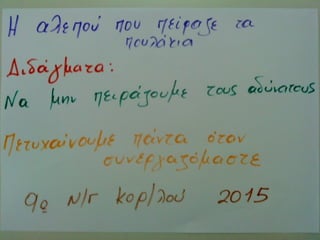 Η αλεπού που πείραζε τα
πουλάκια
Διδάγματα:
Να μην πειράζουμε τους αδύνατους
Πετυχαίνουμε πάντα όταν
συνεργαζόμαστε
9ο Ν/Γ Κορ/λού 2015